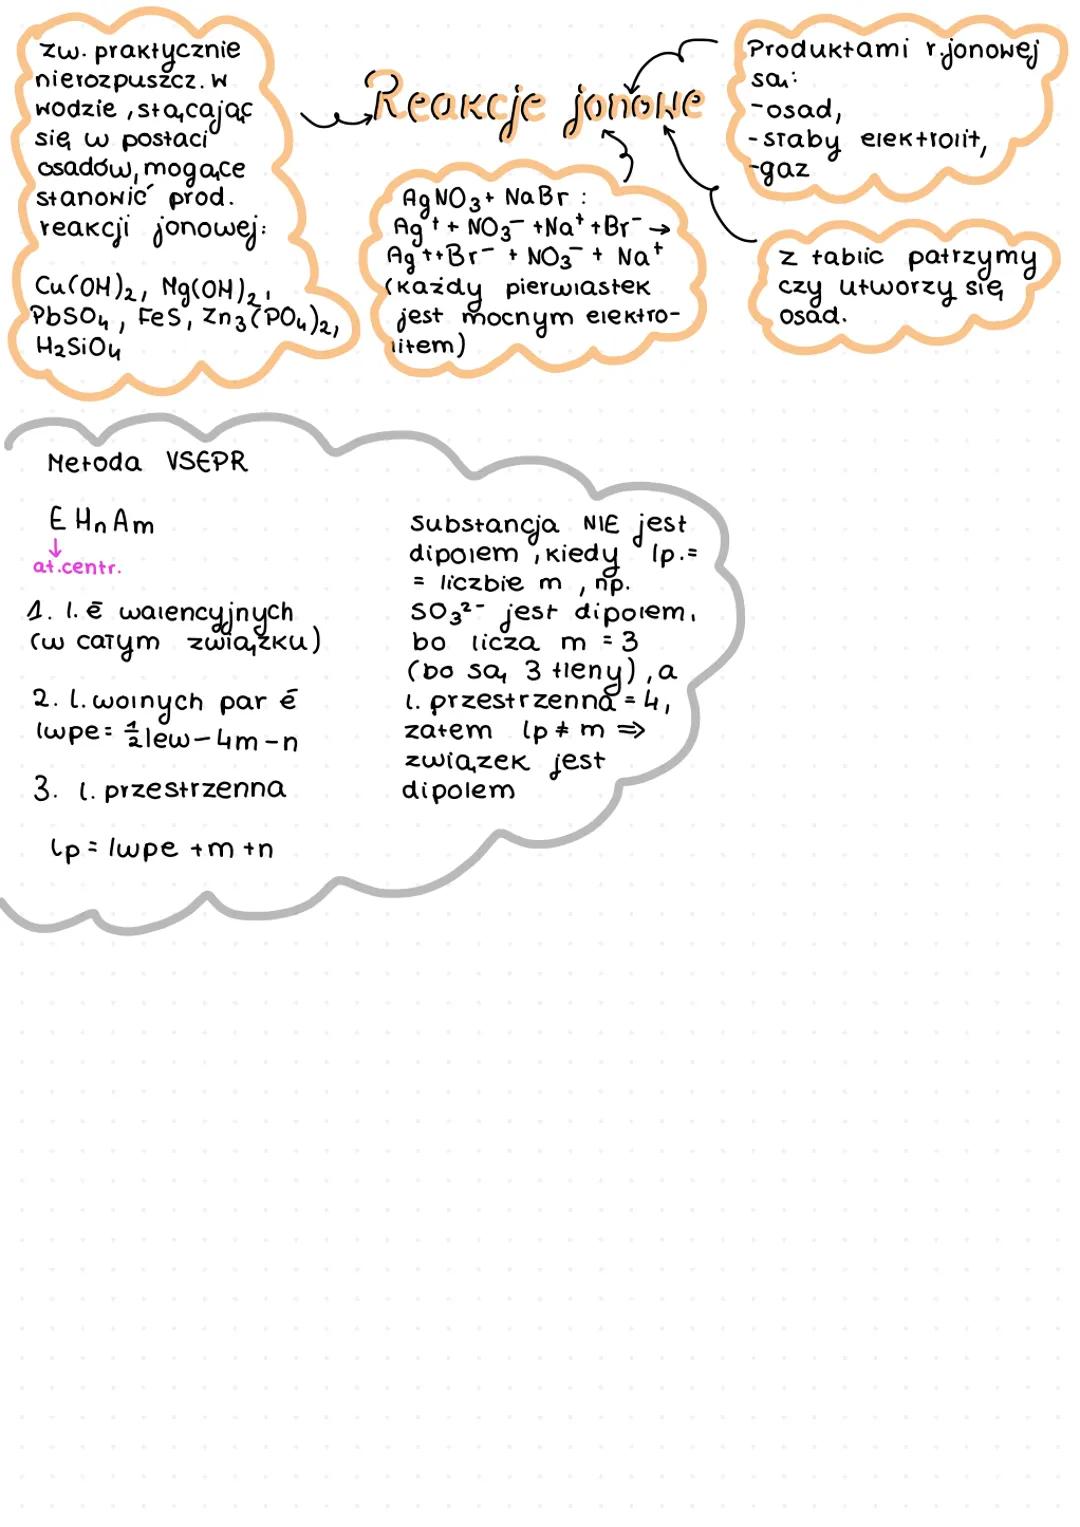 Reakcje jonowe
zw. praktycznie
nierozpuszcz. w
wodzie, strącając
się w postaci
osadów, mogące
stanowić prod.
reakcji jonowej:
Cu(OH)₂, Mg(OH)₂,
PbSO₄, FeS, Zn₃(PO₄)₂,
H₂SiO₄
AgNO₃ + NaBr :
Ag⁺ + NO₃⁻ + Na⁺ + Br⁻ →
Ag⁺+Br⁻ + NO₃⁻ + Na⁺
(każdy pierwiastek
jest mocnym elektro-
litem)
Produktami r.jonowej
są:
-osad,
-słaby elektrolit,
-gaz
z tablic patrzymy
czy utworzy się
osad.
Metoda VSEPR
E HₙAₘ
↓
at.centr.
1. l. ē walencyjnych
(w całym związku)
2. l. wolnych par ē
lwpe = ½lew-4m-n
3. l. przestrzenna
lp = lwpe +m +n
Substancja NIE jest
dipolem, kiedy lp.=
= liczbie m, np.
SO₃²⁻ jest dipolem,
bo licza m = 3
(bo są 3 tleny), a
l. przestrzenna = 4,
zatem lp ≠ m ⇒
związek jest
dipolem